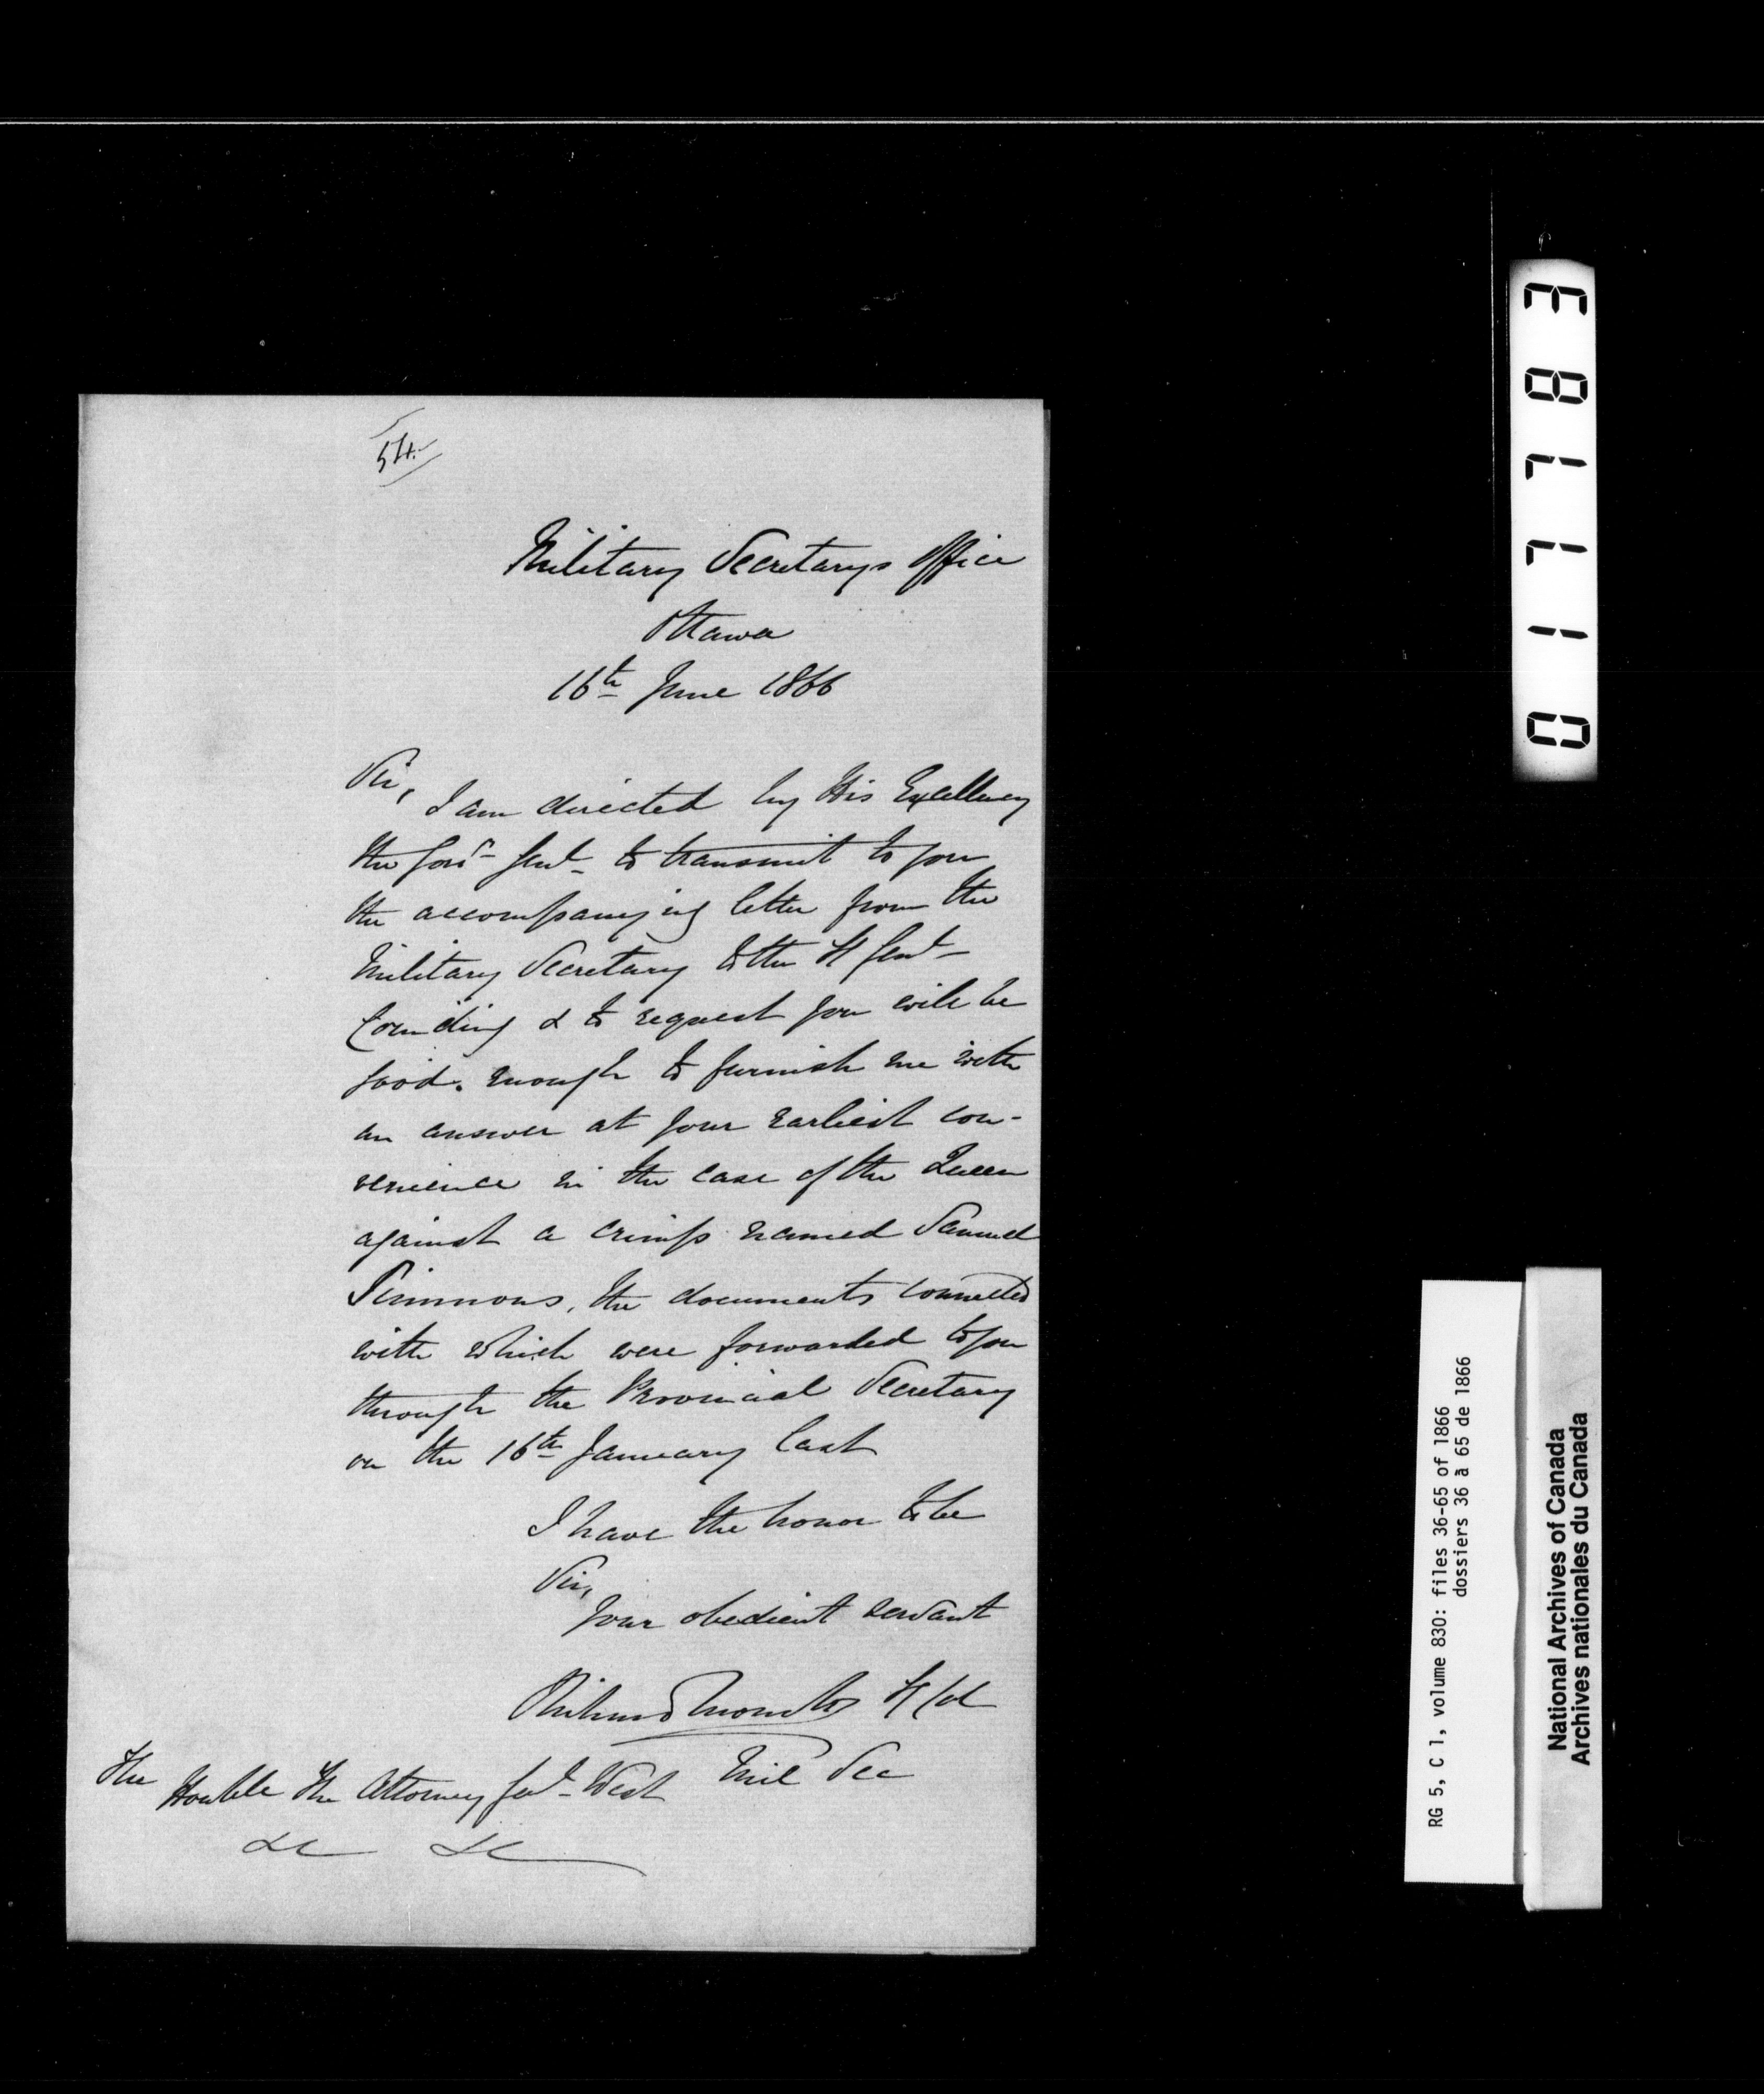 54.
Military Secretarys Office
Ottawa
16th June 1866
Sir,
I am directed by His Excellency
the Govr Genl to transmit to you
the accompanying letter from the
Military Secretary to the Lt Genl
Comding & to request you will be
good enough to furnish me with
an answer at your earliest con-
venience in the case of the Queen
against a crimp named Samuel
Simmons, the documents connected
with which were forwarded to you
through the Provincial Secretary
on the 16th January last
I have the honor to be
Sir,
Your obedient servant
Lt Col
Mil Sec
The
Honble the Attorney Genl West
&c &c
017783
RG 5, C 1, volume 830: files 36-65 of 1866
dossiers 36 à 65 de 1866
National Archives of Canada
Archives nationales du Canada